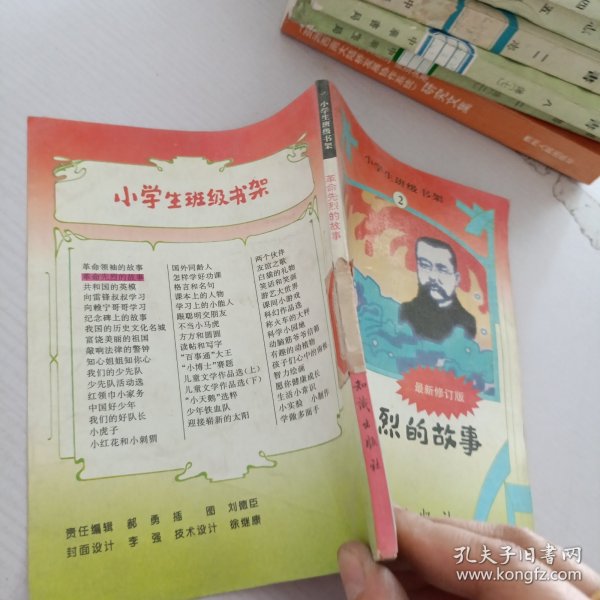 小学生班级书架
革命领袖的故事
革命先烈的故事
共和国的英模
向雷锋叔叔学习
向赖宁哥哥学习
纪念碑上的故事
我国的历史文化名城
富饶美丽的祖国
敲响法律的警钟
知心姐姐知你心
我们的少先队
少先队活动选
红领巾小家务
中国好少年
我们的好队长
小虎子
小红花和小刺猬
国外同龄人
怎样学好功课
格言和名句
课本上的人物
学习上的小能人
跟聪明交朋友
不当小马虎
方方和圆圆
读帖和写字
“百事通”大王
“小博士”赛题
儿童文学作品选(上)
儿童文学作品选(下)
“小天鹅”选粹
少年铁血队
迎接崭新的太阳
两个伙伴
友谊之歌
白猿的礼物
笑话和笑画
游艺大世界
课间小游戏
科幻作品选
称火车的大秤
科学小园地
动脑筋爷爷信箱
有趣的动植物
孩子们心中的
智力绘画
愿你健康成长
生活小常识
小实验 小制作
学做多面手
责任编辑 郝勇 插图 刘德臣
封面设计 李强 技术设计 徐继康
小学生班级书架
革命先烈的故事
知识出版社
小学生班级书架
2
最新修订版
烈的故事
研究文集
孔夫子旧书网
www.kongfz.com